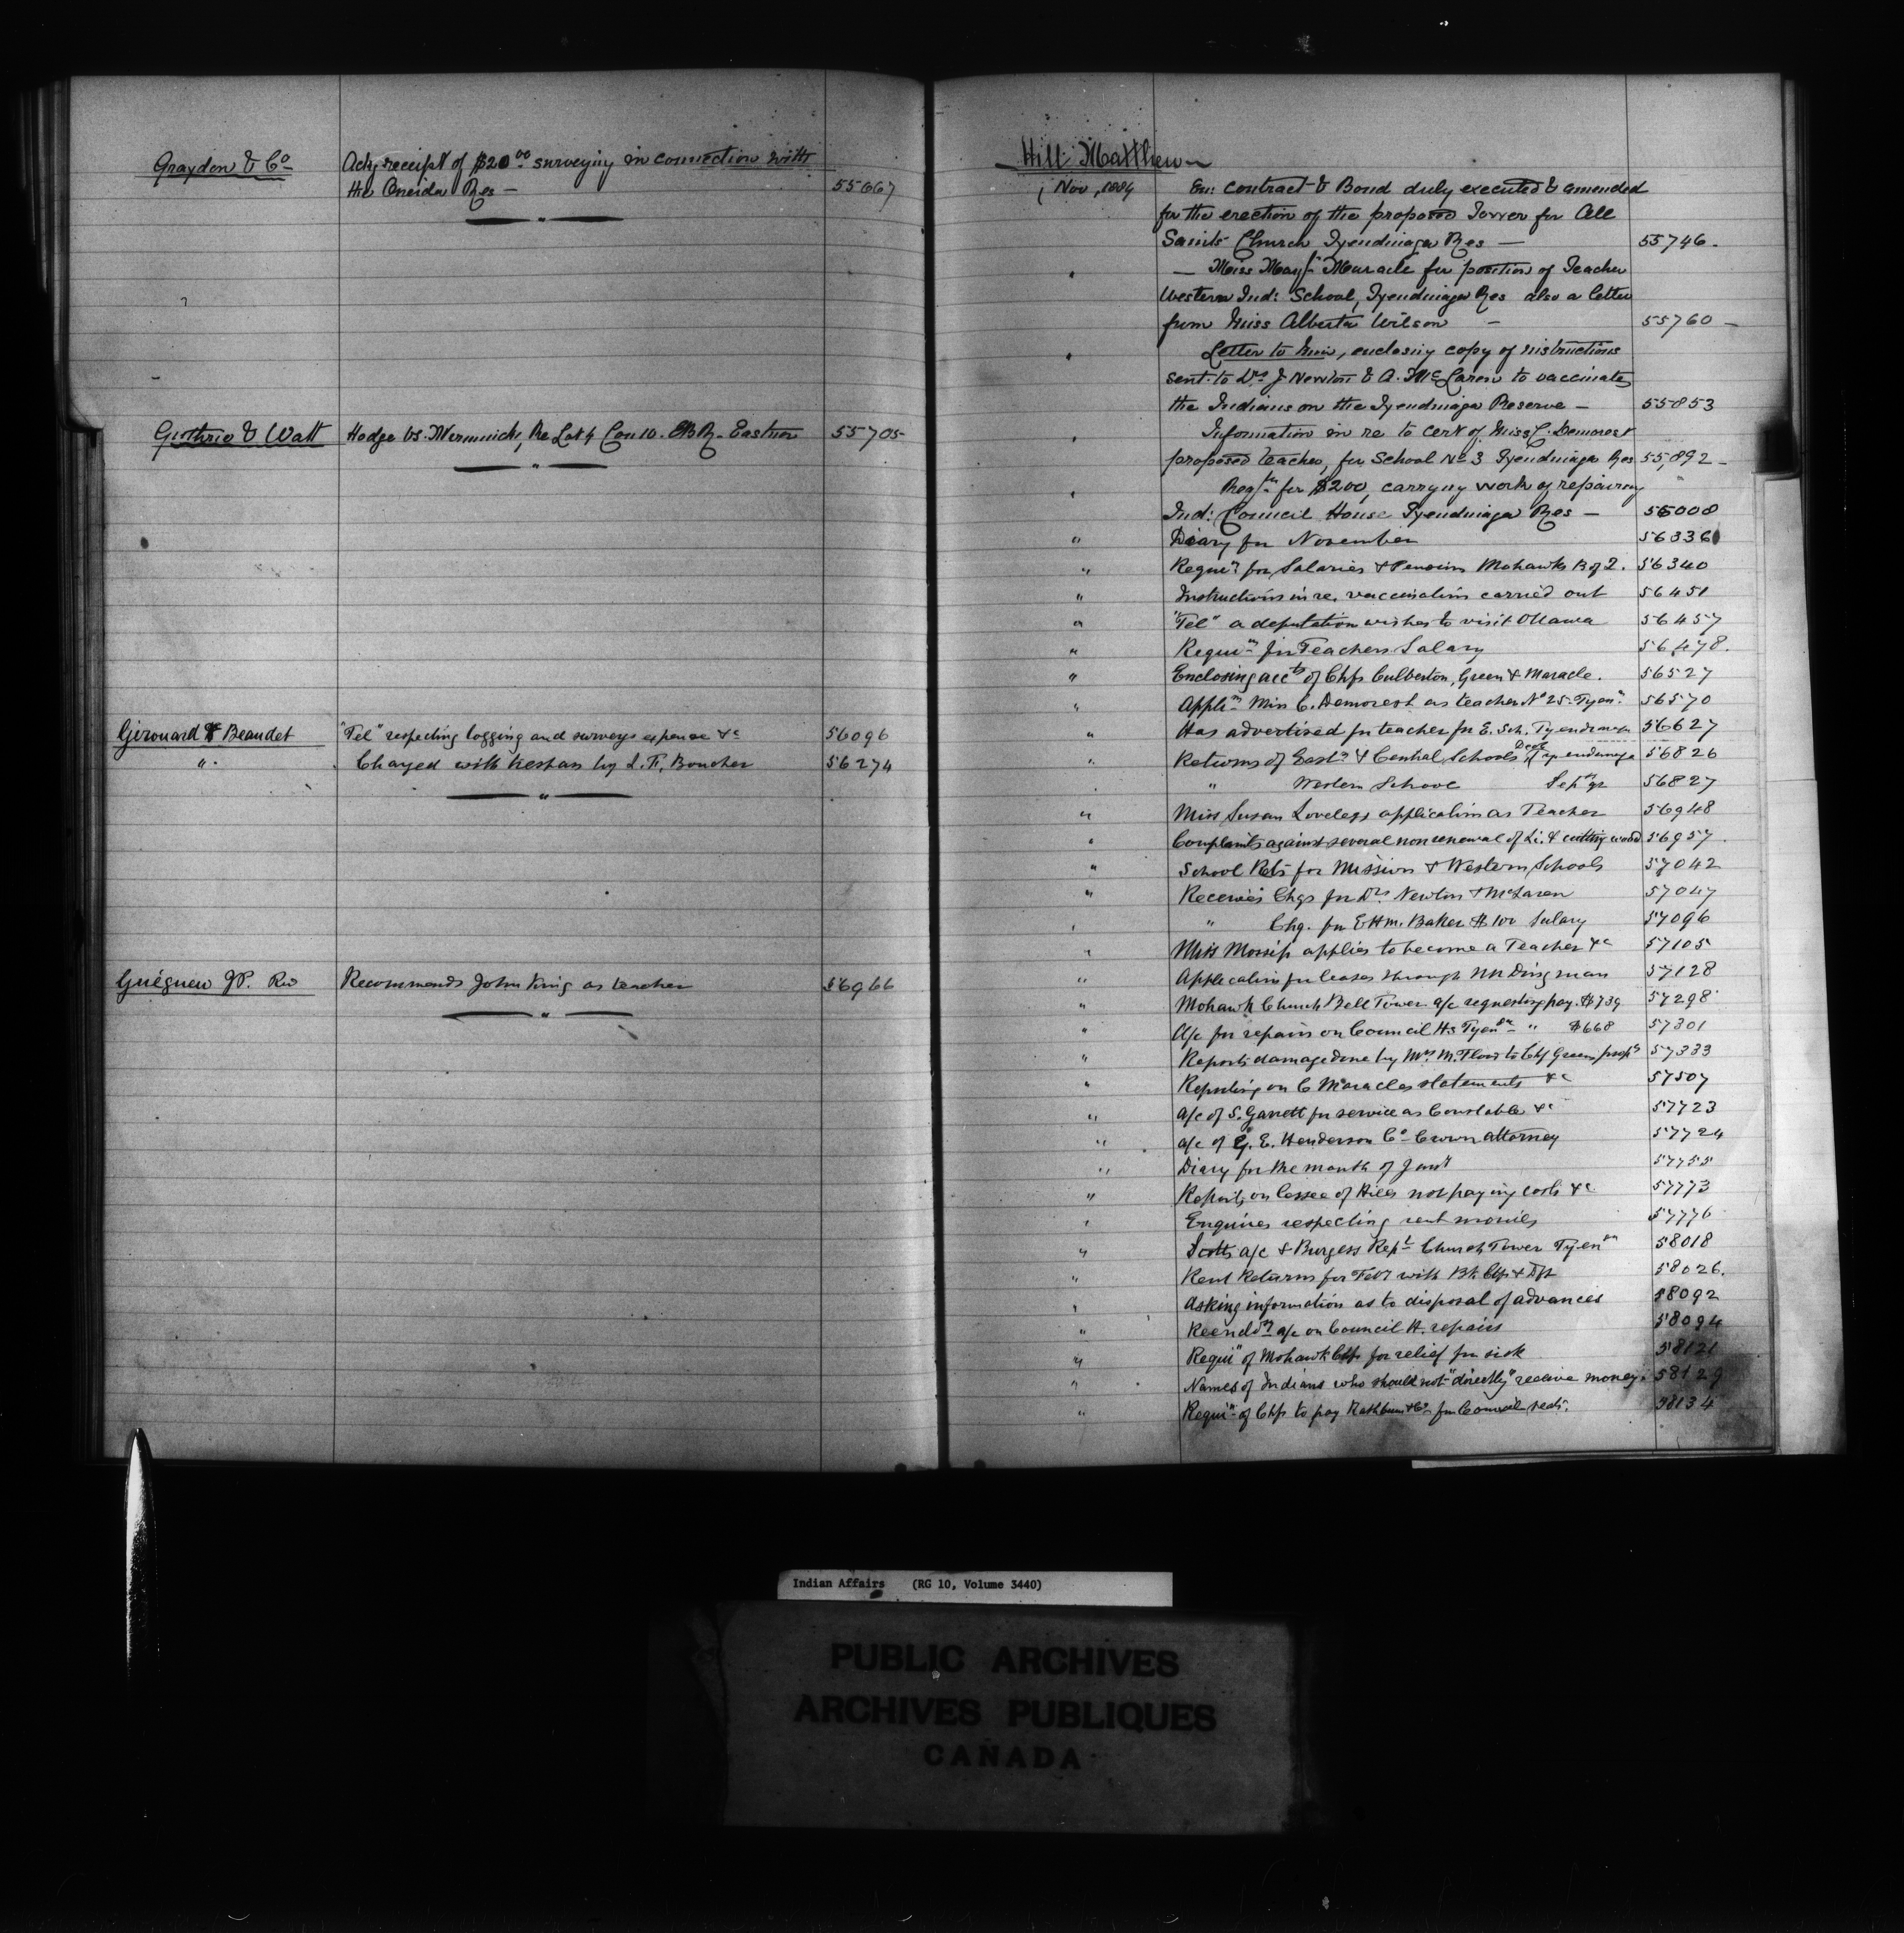 Graydon & Co Ack receipt of $20.00 surveying in connection with
the Oneida Res — 55667
Guthrie & Watt Hodge vs. Re Lot 4 Con 10. Eastnor 55705
Girouard & Beaudet "Tel" respecting logging and surveys expense &c 56096
" Charged with trespass by L. F. Boucher 56274
Guéguen JP. Rev Recommends John King as teacher 56966
Hill Matthew
1 Nov, 1884 En: contract & Bond duly executed & amended
for the erection of the proposed Tower for All
Saints Church Tyendinaga Res — 55746.
" — Miss Mary Maracle for position of Teacher
Western Ind: School, Tyendinaga Res also a letter
from Miss Alberta Wilson — 55760 —
" Letter to him, enclosing copy of instructions
sent to Drs J Newton & A. McLaren to vaccinate
the Indians on the Tyendinaga Reserve — 55853
" Information in re to cert of Miss C. Demorest
proposed teacher, for School No 3 Tyendinaga Res 55,892 —
" for $200, carrying work of repairing
Ind: Council House Tyendinaga Res — 56008
" Diary for November 56336
" Requin for Salaries & Pensions Mohawks B of Q. 56340
" Instructions in re. vaccination carried out 56451
" "Tel" a deputation wishes to visit Ottawa 56457
" Requin for Teachers Salary 56478.
" Enclosing accts of Chfs Culberton, Green & Maracle. 56527
" Appln Miss C. Demorest as teacher No 25. Tyen 56570
" Has advertised for teacher for E. Sch. Tyendinaga 56627
" Returns of East & Central Schools Tyendinaga 56826
" Western School Sep qr 56827
" Miss Susan Loveless application as Teacher 56948
" Complaints against several non renewal of Li. & cutting wood 56957
" School Rets for Mission & Western Schools 57042
" Receives Chqs for Drs Newton & McLaren 57047
" " Chq. for E Hm. Baker $100 Salary 57096
" Miss Mossip applies to become a Teacher &c 57105
" Application for leases through Mr Dingman 57128
" Mohawk Church Bell Tower a/c requesting pay. $739 57298
" A/c for repairs on Council Hs Tyen " $668 57301
" Reports damage done by Mrs M. Flood to Chf Greens 57383
" Reporting on C Maracles statements &c 57507
" a/c of S. Garrett for service as Constable &c 57723
" a/c of G. E. Henderson Co Crown attorney 57724
" Diary for the month of Jany 57755
" Reports on lessee of Hills not paying costs &c 57773
" Enquires respecting rent monies 57776
" Scotts a/c & Burgess Rept Church Tower Tyen 58018
" Rent Returns for Feby with Bk 58026.
" Asking information as to disposal of advances 58092
" a/c on Council H. repairs 58094
" Requin of Mohawk Chfs for relief for sick 58121
" Names of Indians who should not "directly" receive money. 58129
" Requin of Chfs to pay Rathbun & Co for Council 58134
Indian Affairs (RG 10, Volume 3440)
PUBLIC ARCHIVES
ARCHIVES PUBLIQUES
CANADA